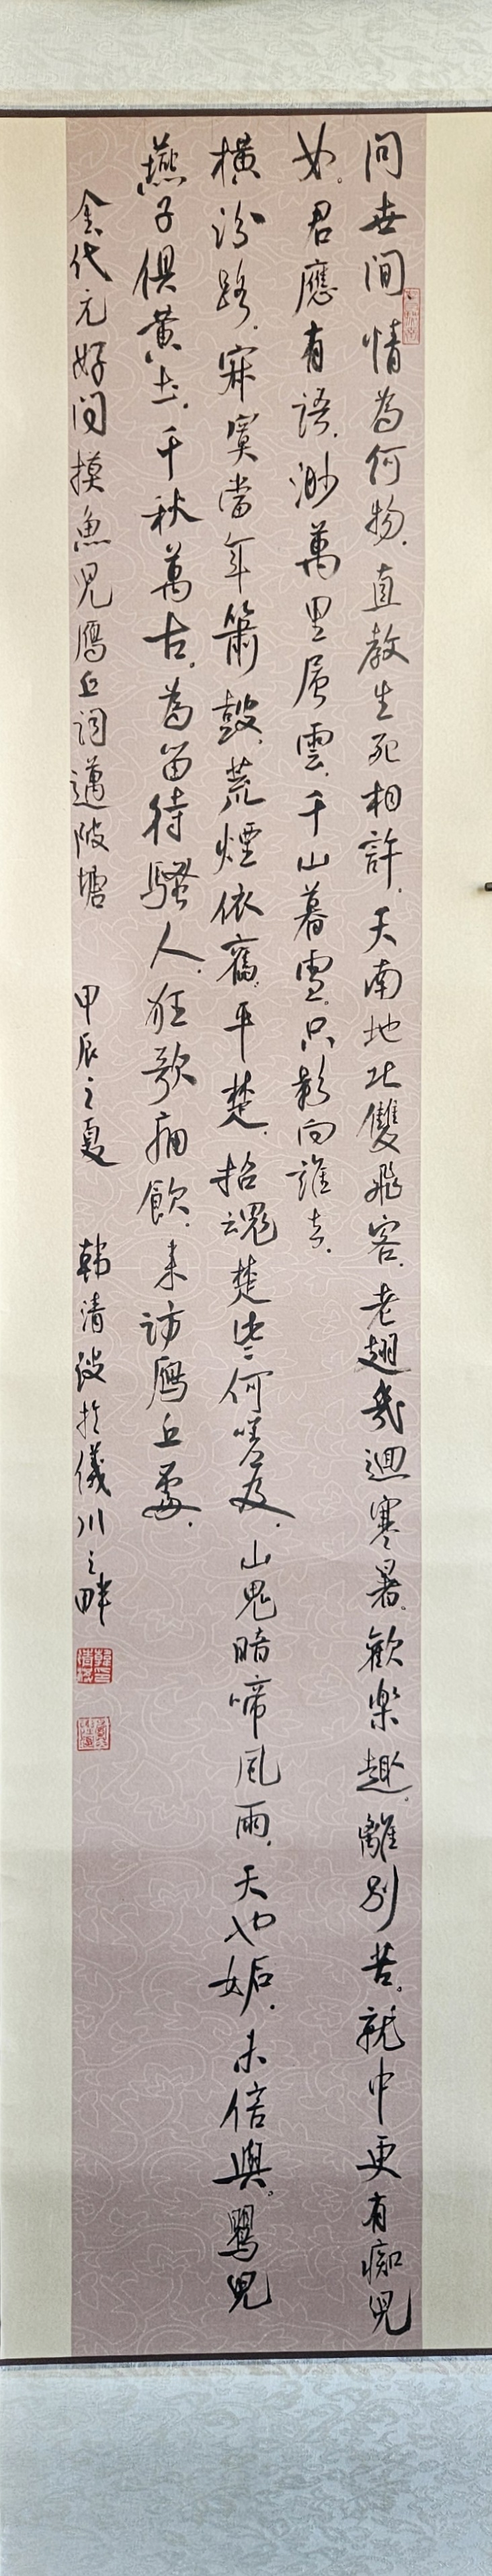 問世間情為何物。直教生死相許。天南地北雙飛客。老翅幾迴寒暑。歡樂趣。離別苦。就中更有痴兒
女。君應有語。渺萬里層雲。千山暮雪。只影向誰去。
橫汾路。寂寞當年簫鼓。荒煙依舊。平楚。招魂楚些何嗟及。山鬼暗啼風雨。天也妬。未信與。鶯兒
燕子俱黃土。千秋萬古。為留待騷人。狂歌痛飲。來訪鴈丘處。
金代元好問摸魚兒鴈丘詞邁陂塘 甲辰之夏 韓清波於儀川之畔